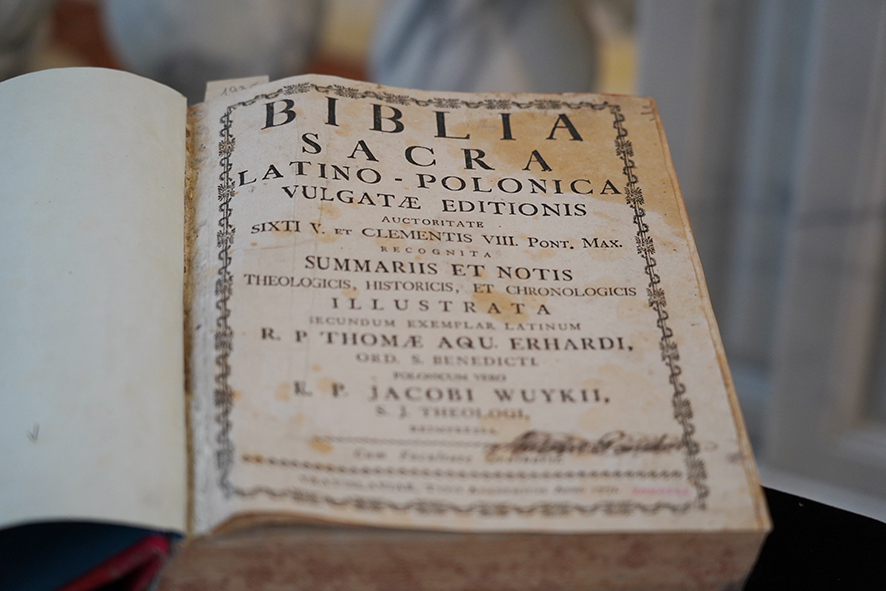 BIBLIA
SACRA
LATINO-POLONICA
VULGATÆ EDITIONIS
AUCTORITATE
SIXTI V. ET CLEMENTIS VIII. PONT. MAX.
RECOGNITA
SUMMARIIS ET NOTIS
THEOLOGICIS, HISTORICIS, ET CHRONOLOGICIS
ILLUSTRATA
SECUNDUM EXEMPLAR LATINUM
R. P. THOMÆ AQU. ERHARDI,
ORD. S. BENEDICTI.
POLONICUM VERO
R. P. JACOBI WUYKII,
S. J. THEOLOGI,
Cum Facultate